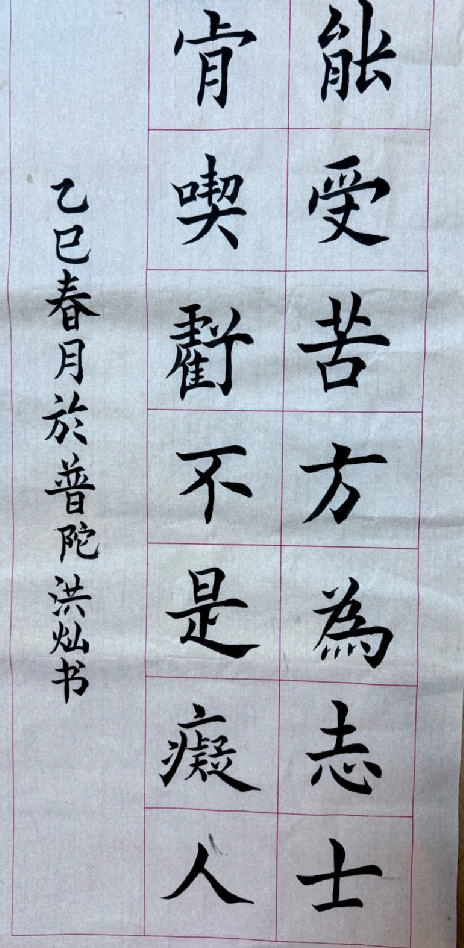 能受苦方為志士
肯喫虧不是癡人
乙巳春月於普陀洪灿书